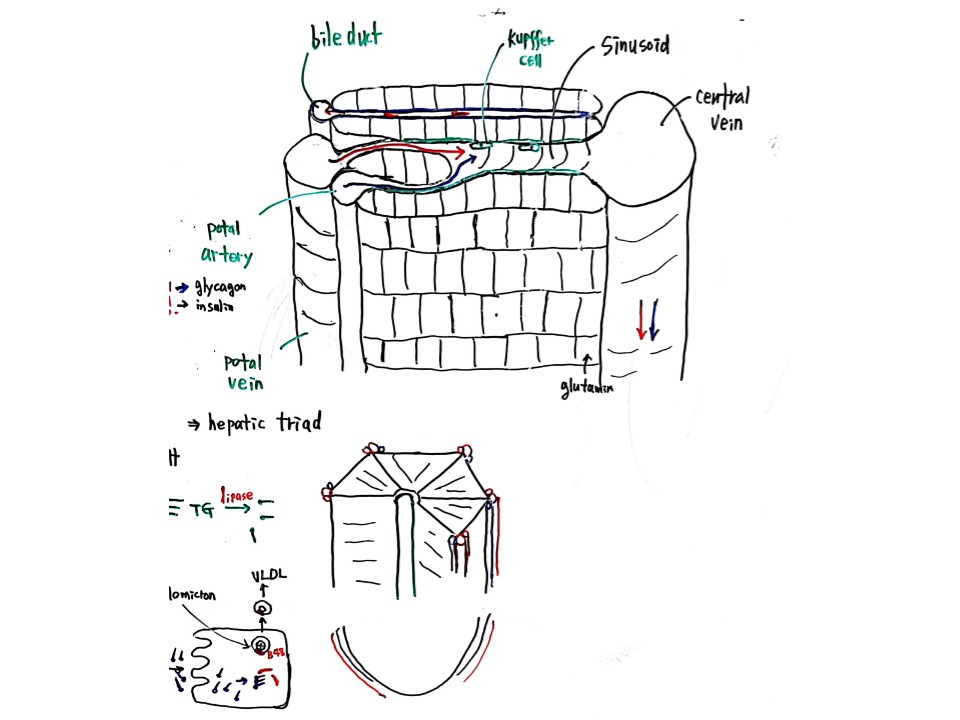 bile duct
kupffer
cell
sinusoid
central
vein
potal
artery
→ glycagon
→ insulin
potal
vein
glutamin
⇒ hepatic triad
H
TG lipase →
VLDL
lomicron
B48